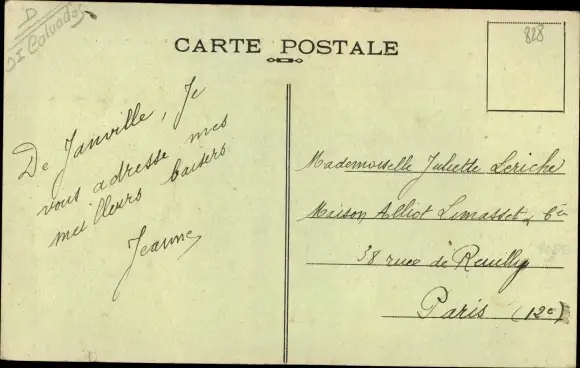 D
DI Calvados
CARTE POSTALE
828
De Janville, Je
vous adresse mes
meilleurs baisers
Jeanne
Mademoiselle Juliette Leriche
Maison Alliot Limasset & Cie
38 rue de Reuilly
Paris (12e)